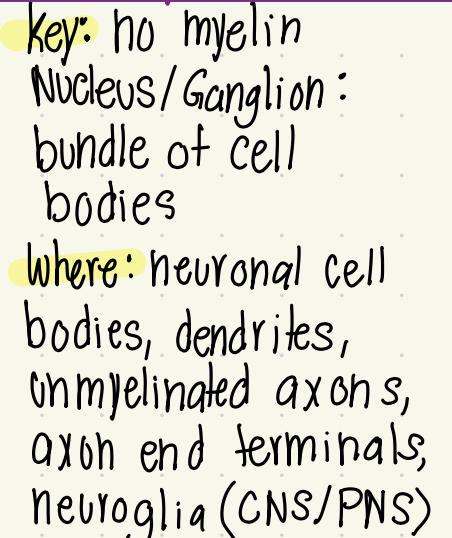 key: no myelin
Nucleus/Ganglion:
bundle of cell
bodies
where: neuronal cell
bodies, dendrites,
unmyelinated axons,
axon end terminals,
neuroglia (CNS/PNS)